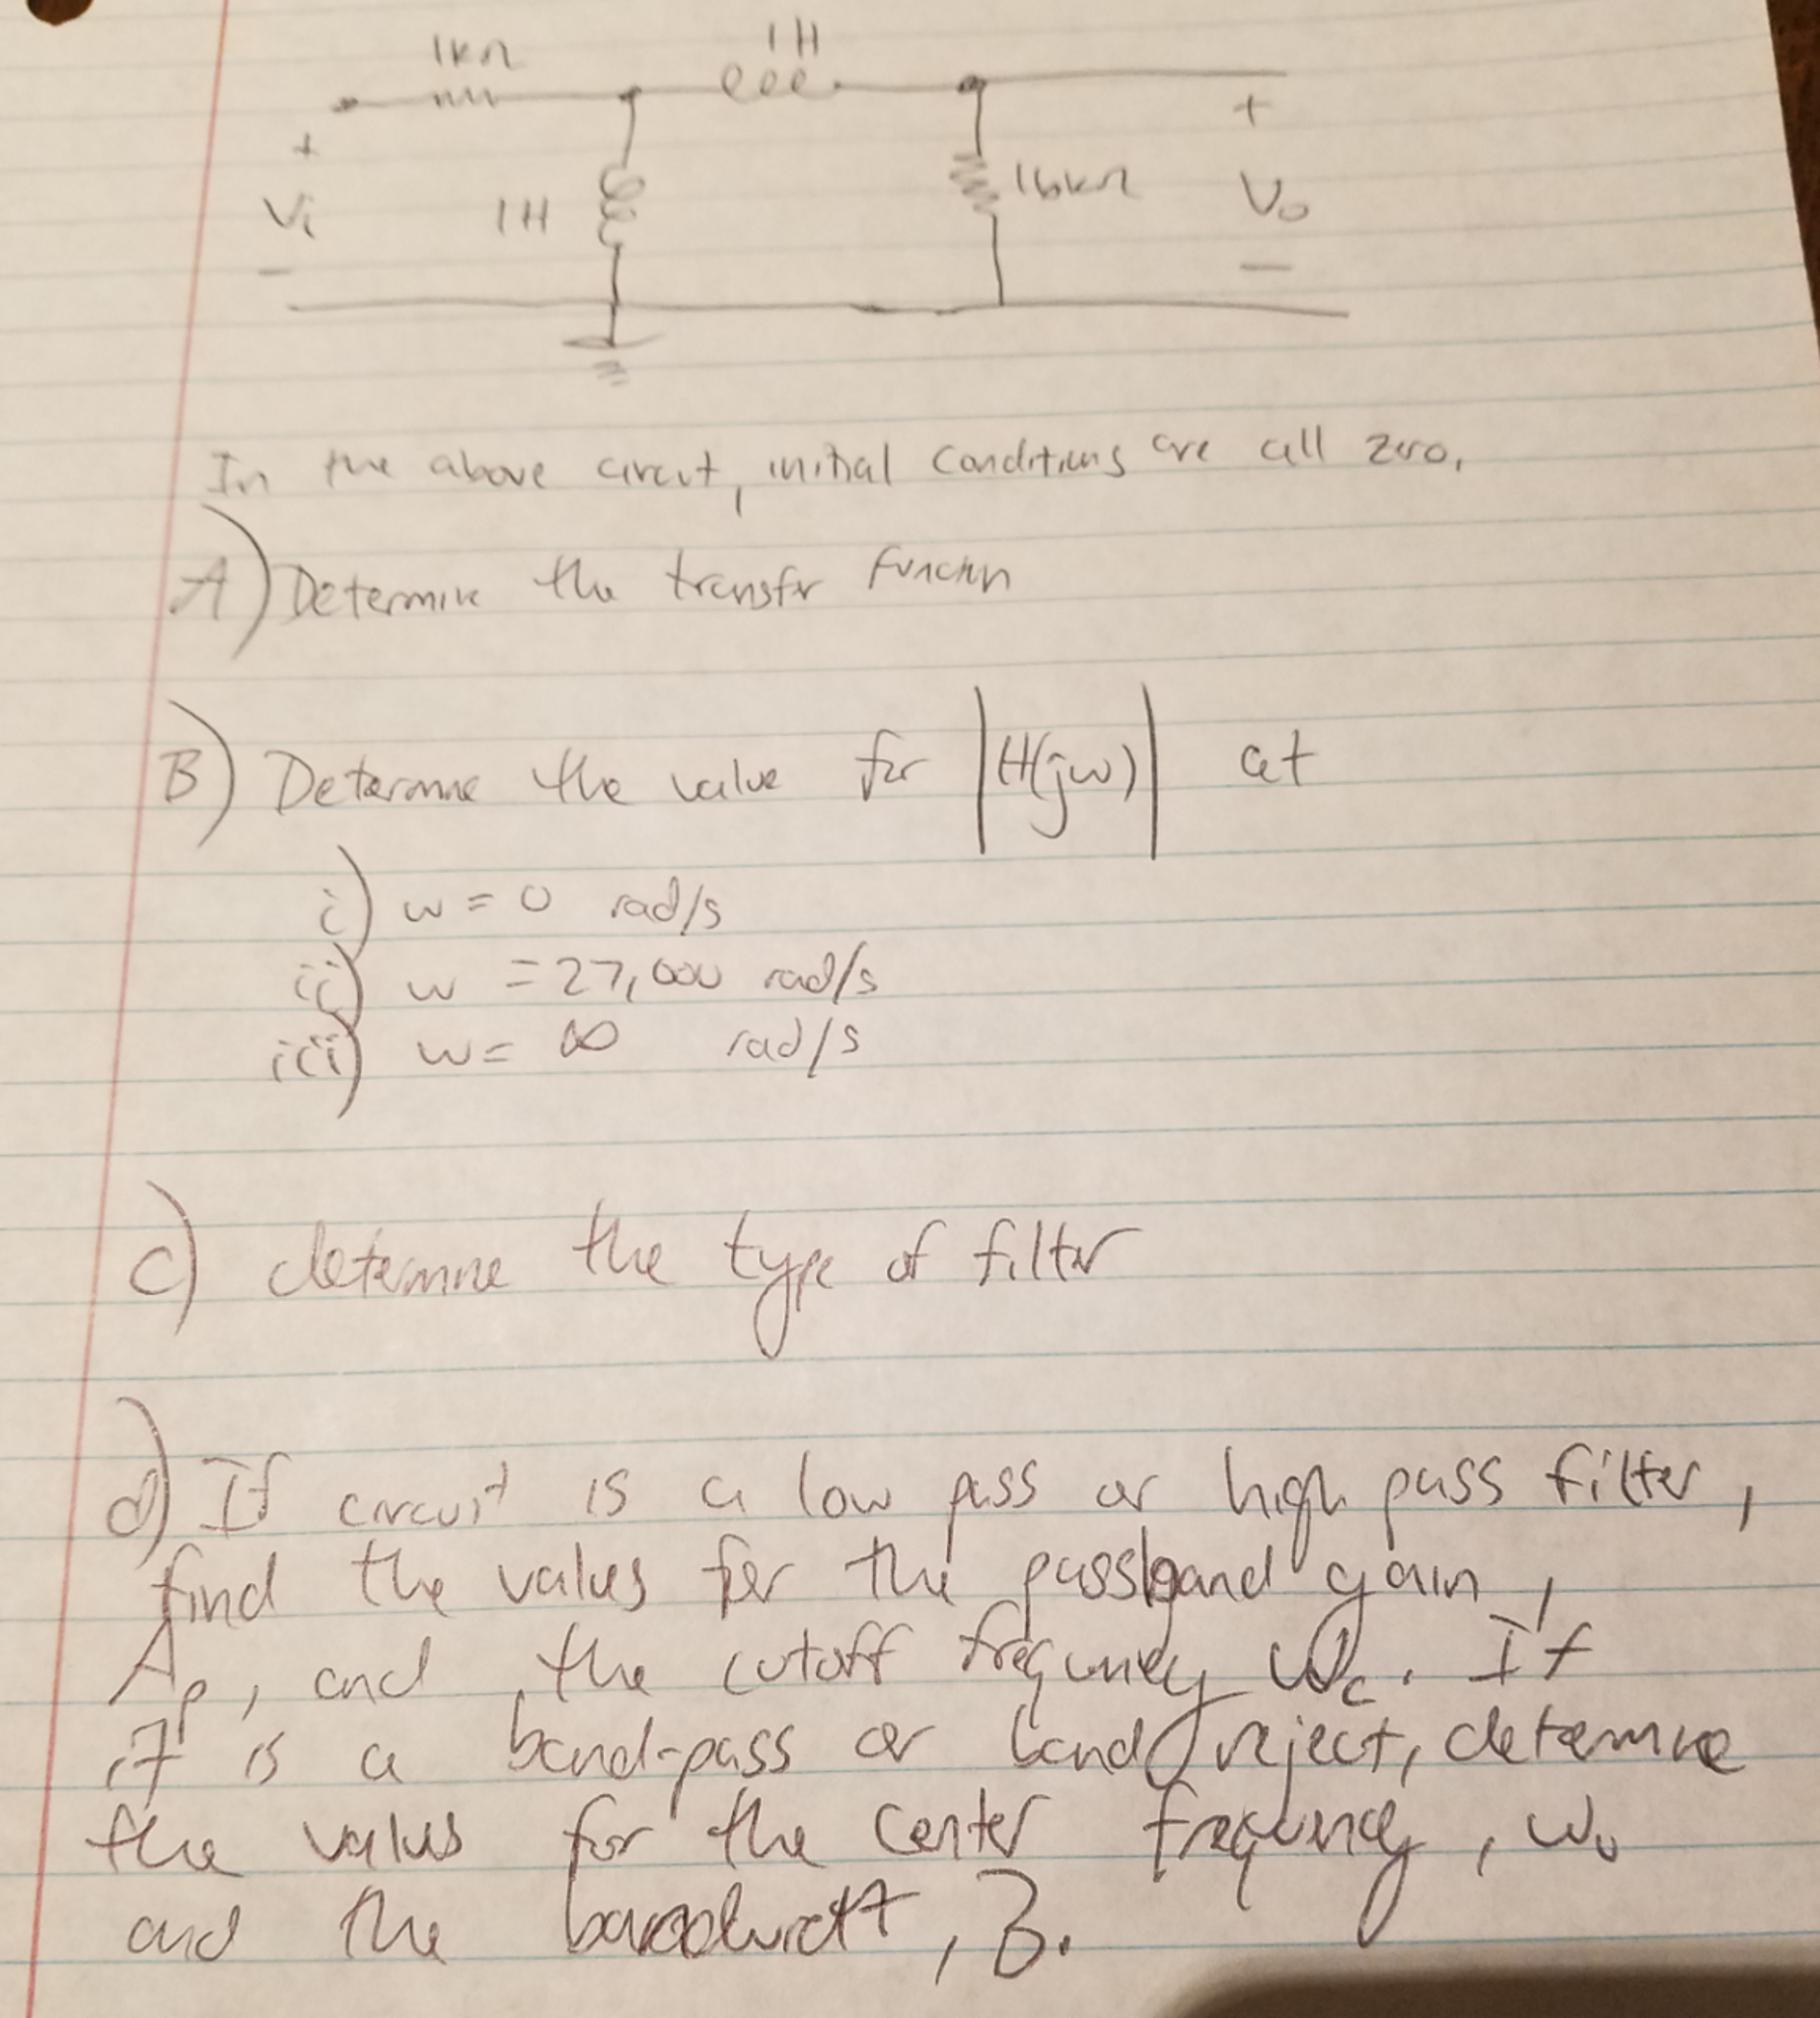 1kΩ 1H
+ +
Vi 1H 16kΩ Vo
- -
In the above circut, initial conditions are all zero,
A) Determine the transfr function
B) Determine the value for |H(jw)| at
i) w = 0 rad/s
ii) w = 27,000 rad/s
iii) w = ∞ rad/s
c) determine the type of filter
d) If circuit is a low pass or high pass filter,
find the values for the passband gain,
Ap, and the cutoff frequency ωc. If
it is a band-pass or band reject, determine
the values for the center frequency, ωo
and the bandwidth, B.